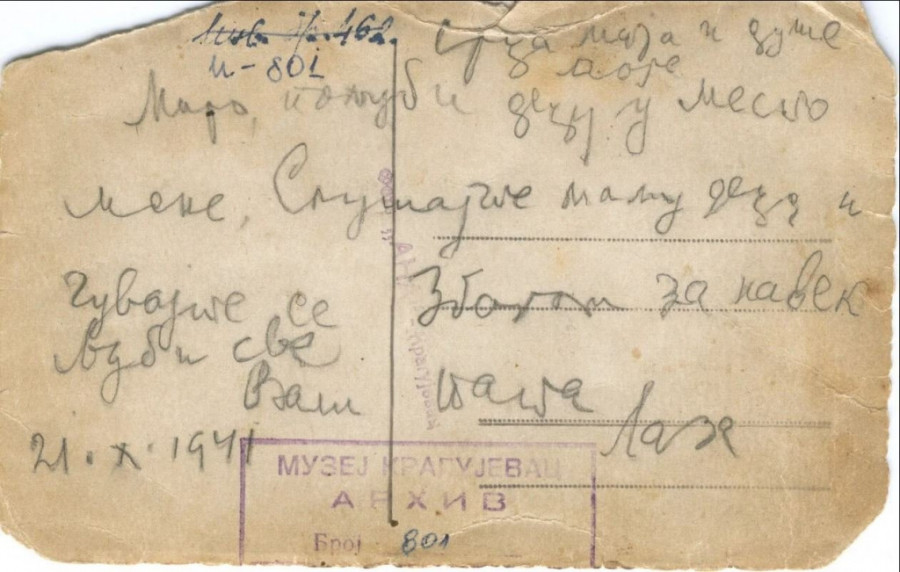 Инв. бр. 162.
И-801
Срца мога и душе
моје
Маро, пољуби децу у место
мене, Слушајте маму децо и
чувајте се Збогом за навек
Љуби све
Ваш тата
Лаза
21. X. 1941
МУЗЕЈ КРАГУЈЕВАЦ
АРХИВ
Број 801